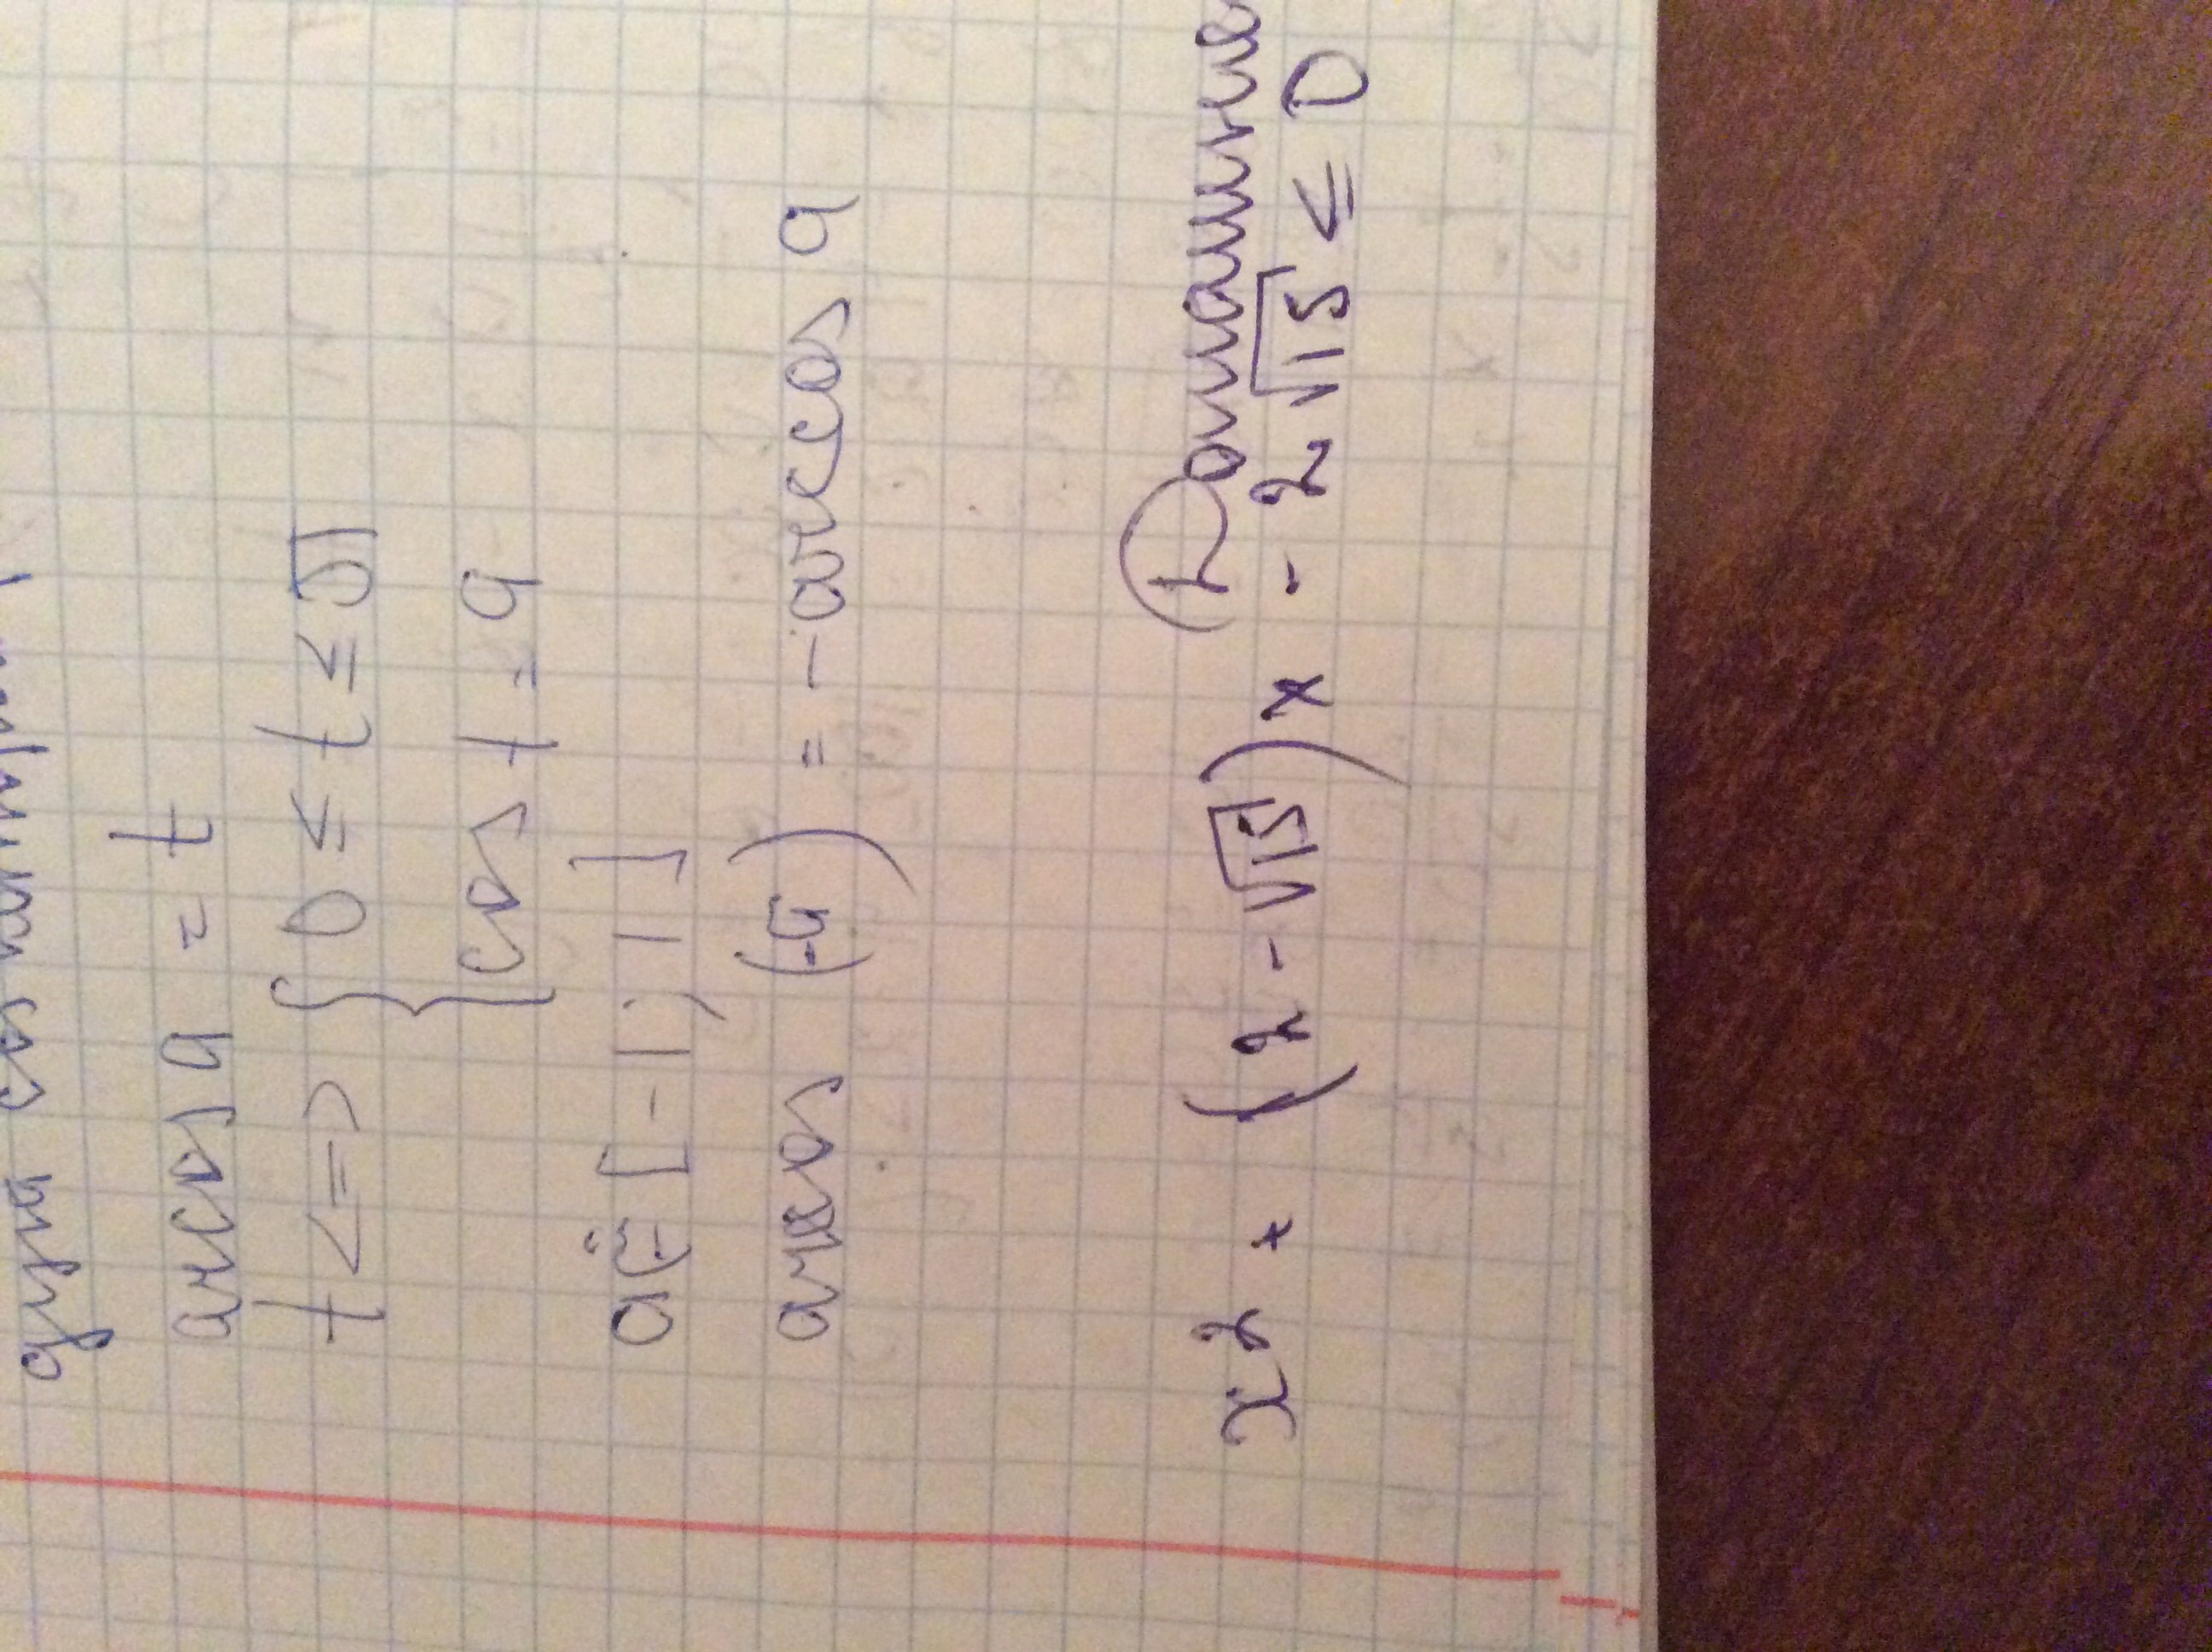 дуга cos которой
arccos a = t
t <=> { 0 ≤ t ≤ π
cos t = a
a ∈ [-1; 1]
arccos (-a) = -arccos a
Домашнее
x² + (2 - √15)x - 2√15 ≤ 0